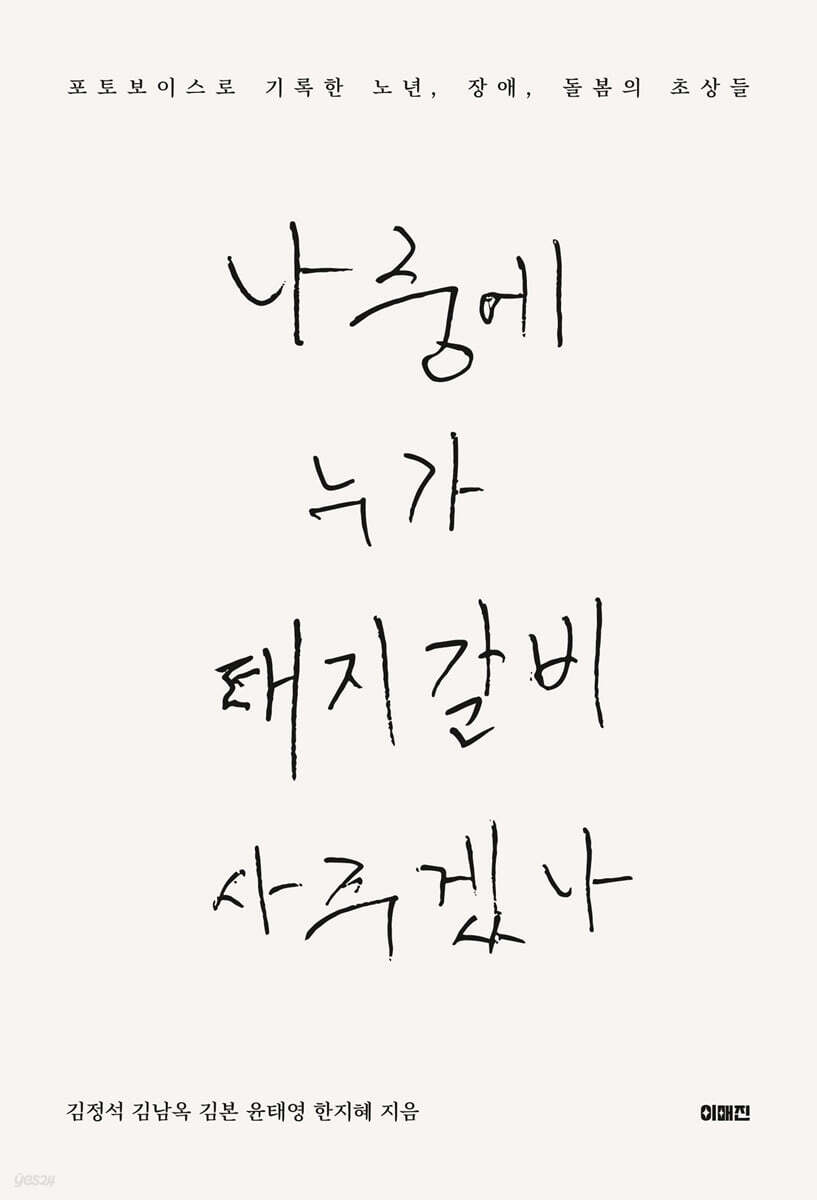 포토보이스로 기록한 노년, 장애, 돌봄의 초상들
나중에
누가
돼지갈비
사주겠나
김정석 김남옥 김본 윤태영 한지혜 지음
이매진
yes24